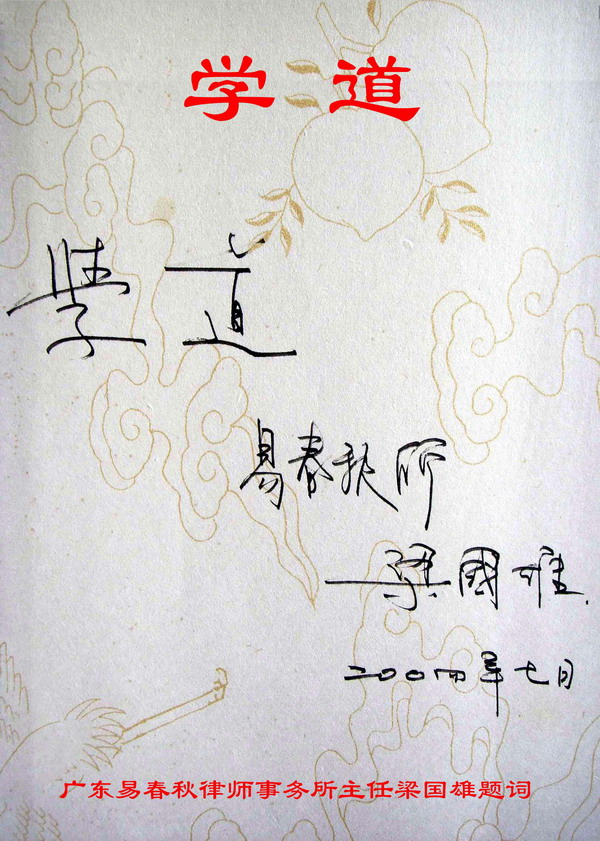 学道
學道
易春秋所
梁國雄
二00四年七月
广东易春秋律师事务所主任梁国雄题词